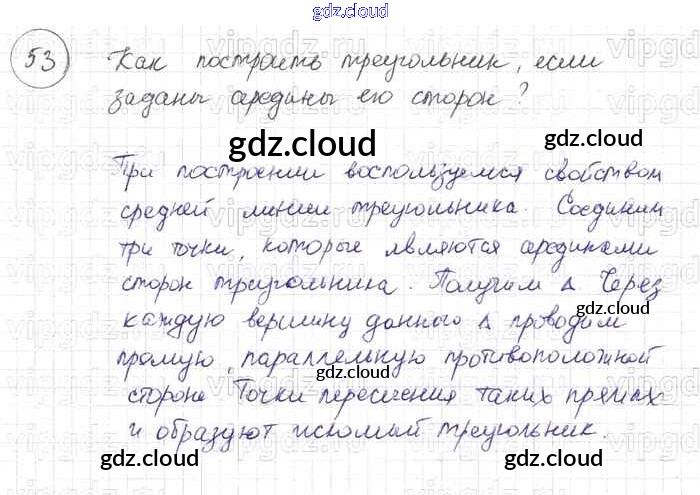 gdz.cloud
53 Как построить треугольник, если
заданы середины его сторон?
gdz.cloud
gdz.cloud
При построении воспользуемся свойством
средней линии треугольника. Соединим
три точки, которые являются серединами
сторон треугольника. Получим Δ. Через
gdz.cloud
каждую вершину данного Δ проводим
прямую, параллельную противоположной
gdz.cloud
стороне. Точки пересечения таких прямых
и образуют искомый треугольник.
gdz.cloud
gdz.cloud